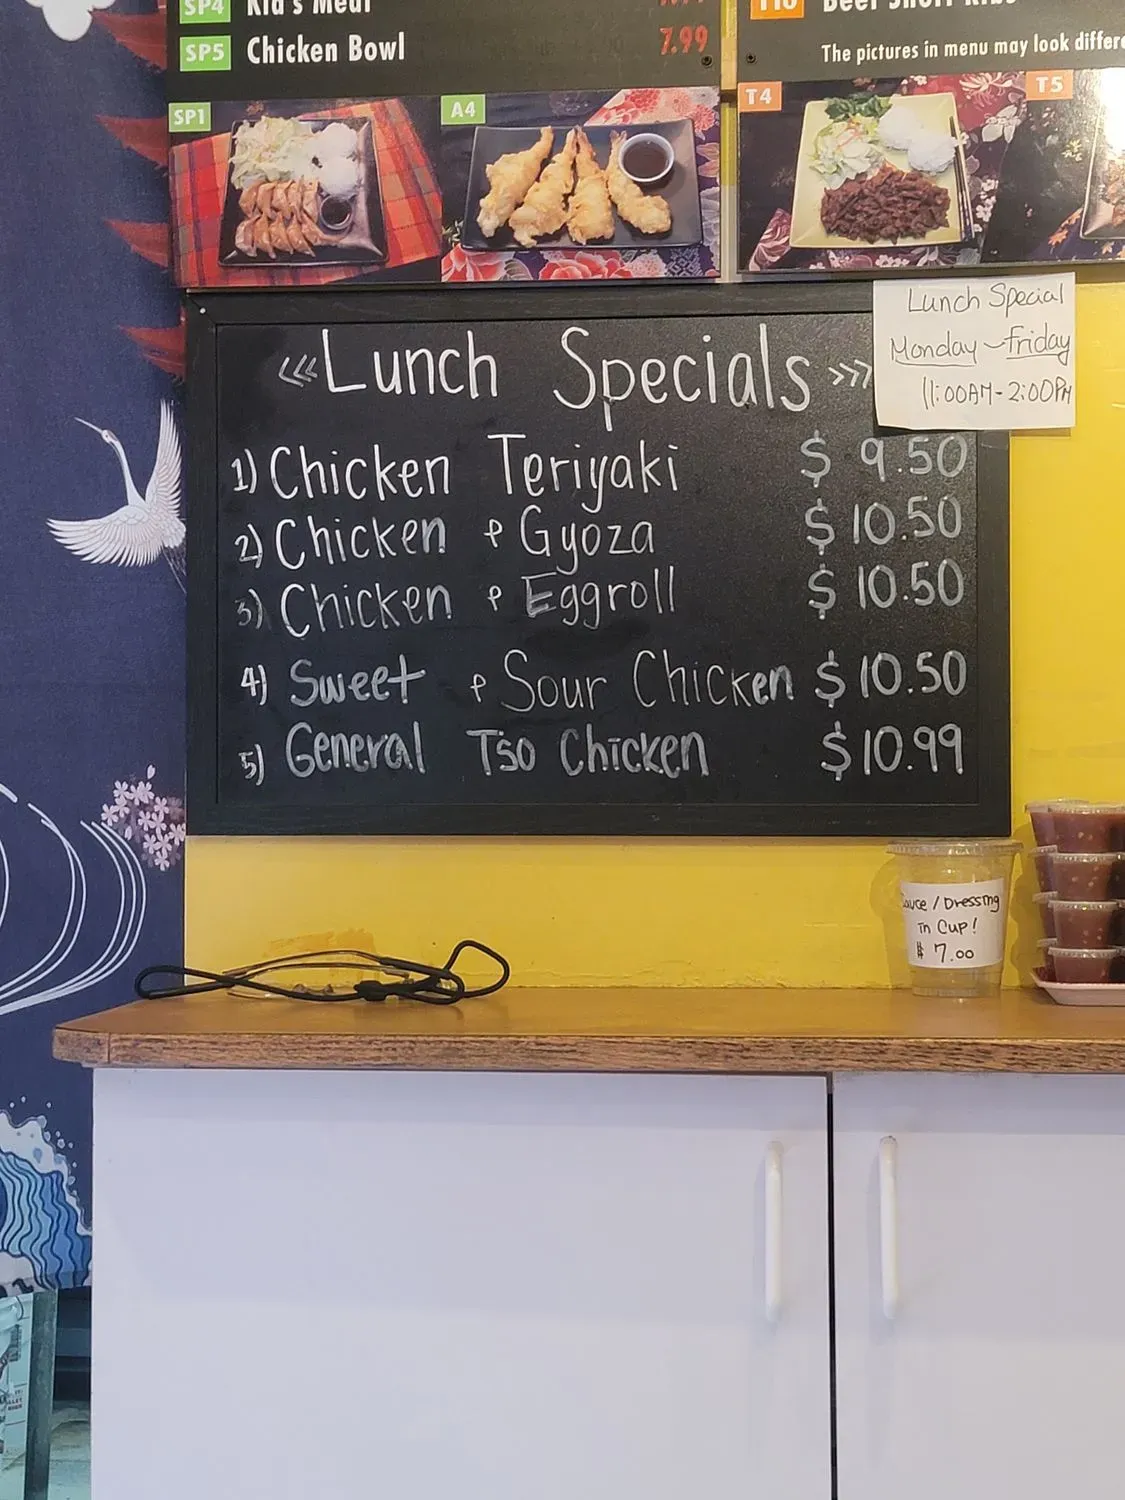 SP4 Kid's Meal
SP5 Chicken Bowl 7.99
The pictures in menu may look
SP1
A4
T4
T5
Lunch Special
Monday ~ Friday
11:00AM - 2:00PM
<<< Lunch Specials >>>
1) Chicken Teriyaki $ 9.50
2) Chicken & Gyoza $ 10.50
3) Chicken & Eggroll $ 10.50
4) Sweet & Sour Chicken $ 10.50
5) General Tso Chicken $ 10.99
Sauce / Dressing
in Cup!
$ 7.00